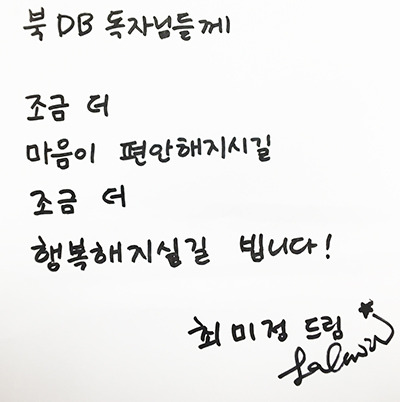 북 DB 독자님들께
조금 더
마음이 편안해지시길
조금 더
행복해지실길 빕니다!
최미정 드림